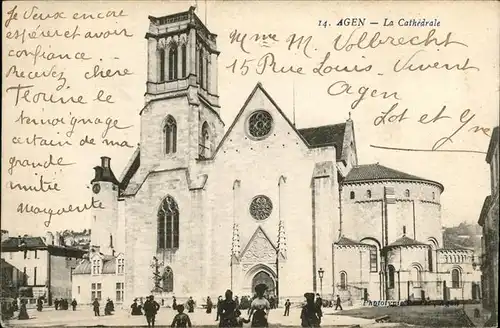 14. AGEN — La Cathédrale
Je veux encore
espérer et avoir
confiance...
Recevez chère
le
témoignage
certain de ma
grande
amitié
Marguerite
Mme M. Volbrecht
15 Rue Louis. Vivent
Agen
Lot et G
Phototypie